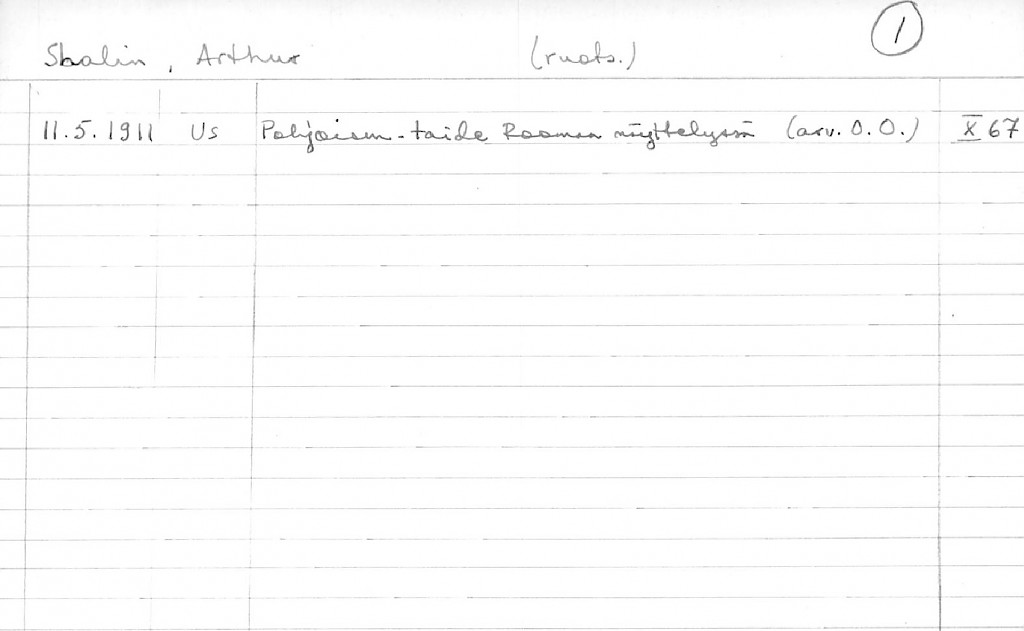 Sbalin, Arthur (ruots.) 1
11.5.1911 Us Pohjoism-taide Rooman näyttelyssä (arv. O.O.) X 67